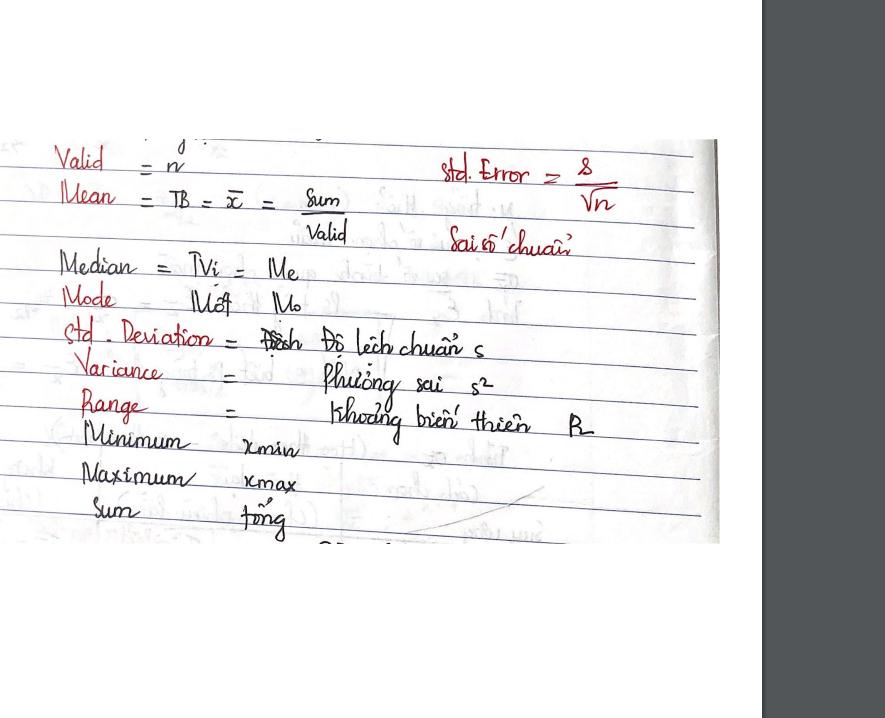 Valid = n
Std. Error = s/√n
Mean = TB = x̄ = Sum/Valid
Sai số chuẩn
Median = TVị = Me
Mode Mốt Mo
Std. Deviation = Độ lệch chuẩn s
Variance = Phương sai s²
Range = Khoảng biến thiên R
Minimum xmin
Maximum xmax
Sum tổng